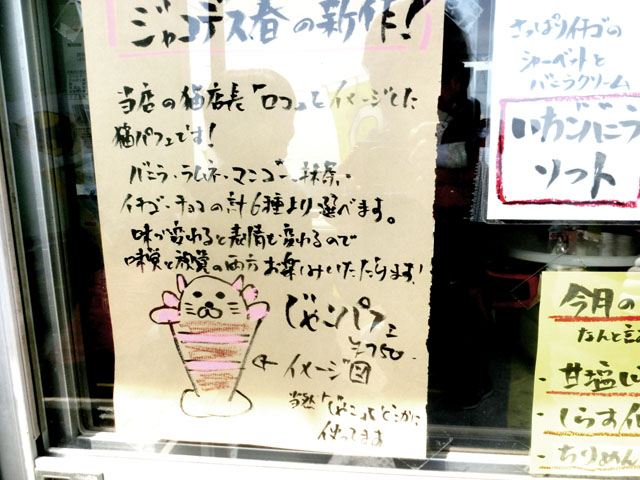 ジャコデス春の新作!
当店の猫店長「ロコ」をイメージした
猫パフェです!
バニラ・ラムネ・マンゴー・抹茶・
イチゴ・チョコの計6種より選べます。
味が変わると表情も変わるので
味覚と視覚の両方お楽しみいただけます!
じゃこパフェ
¥750
イメージ図
当然「じゃこ」もどこかに
使ってます
さっぱりイチゴの
シャーベットと
バニラクリーム
いちごバニラ
ソフト
今月の
なんと
甘塩
しらす
ちりめん